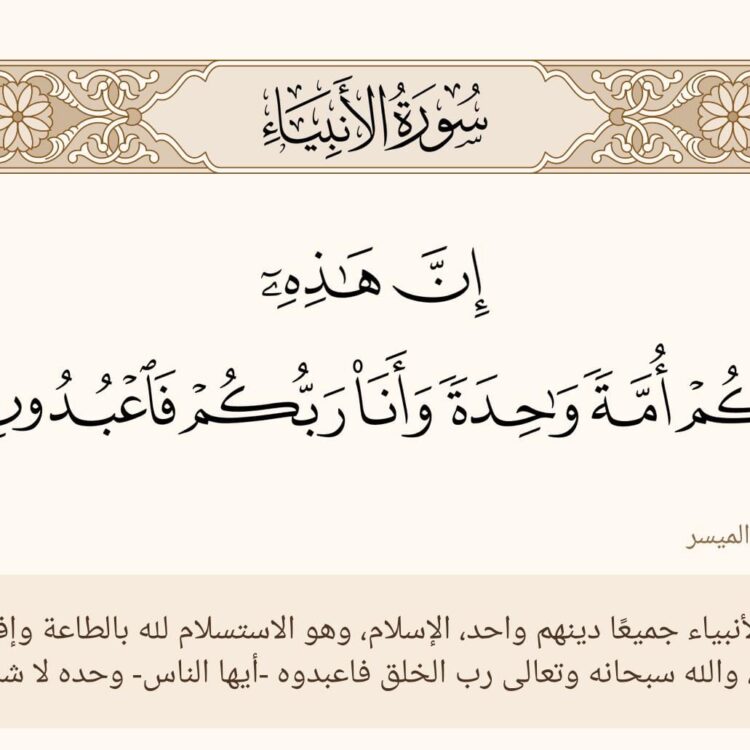 سُورَةُ الأَنبِيَاءِ
إِنَّ هَٰذِهِۦٓ
أُمَّةٗ وَٰحِدَةٗ وَأَنَا۠ رَبُّكُمۡ فَٱعۡبُدُونِ
الميسر
جميعًا دينهم واحد، الإسلام، وهو الاستسلام لله بالطاعة
والله سبحانه وتعالى رب الخلق فاعبدوه -أيها الناس- وحده لا